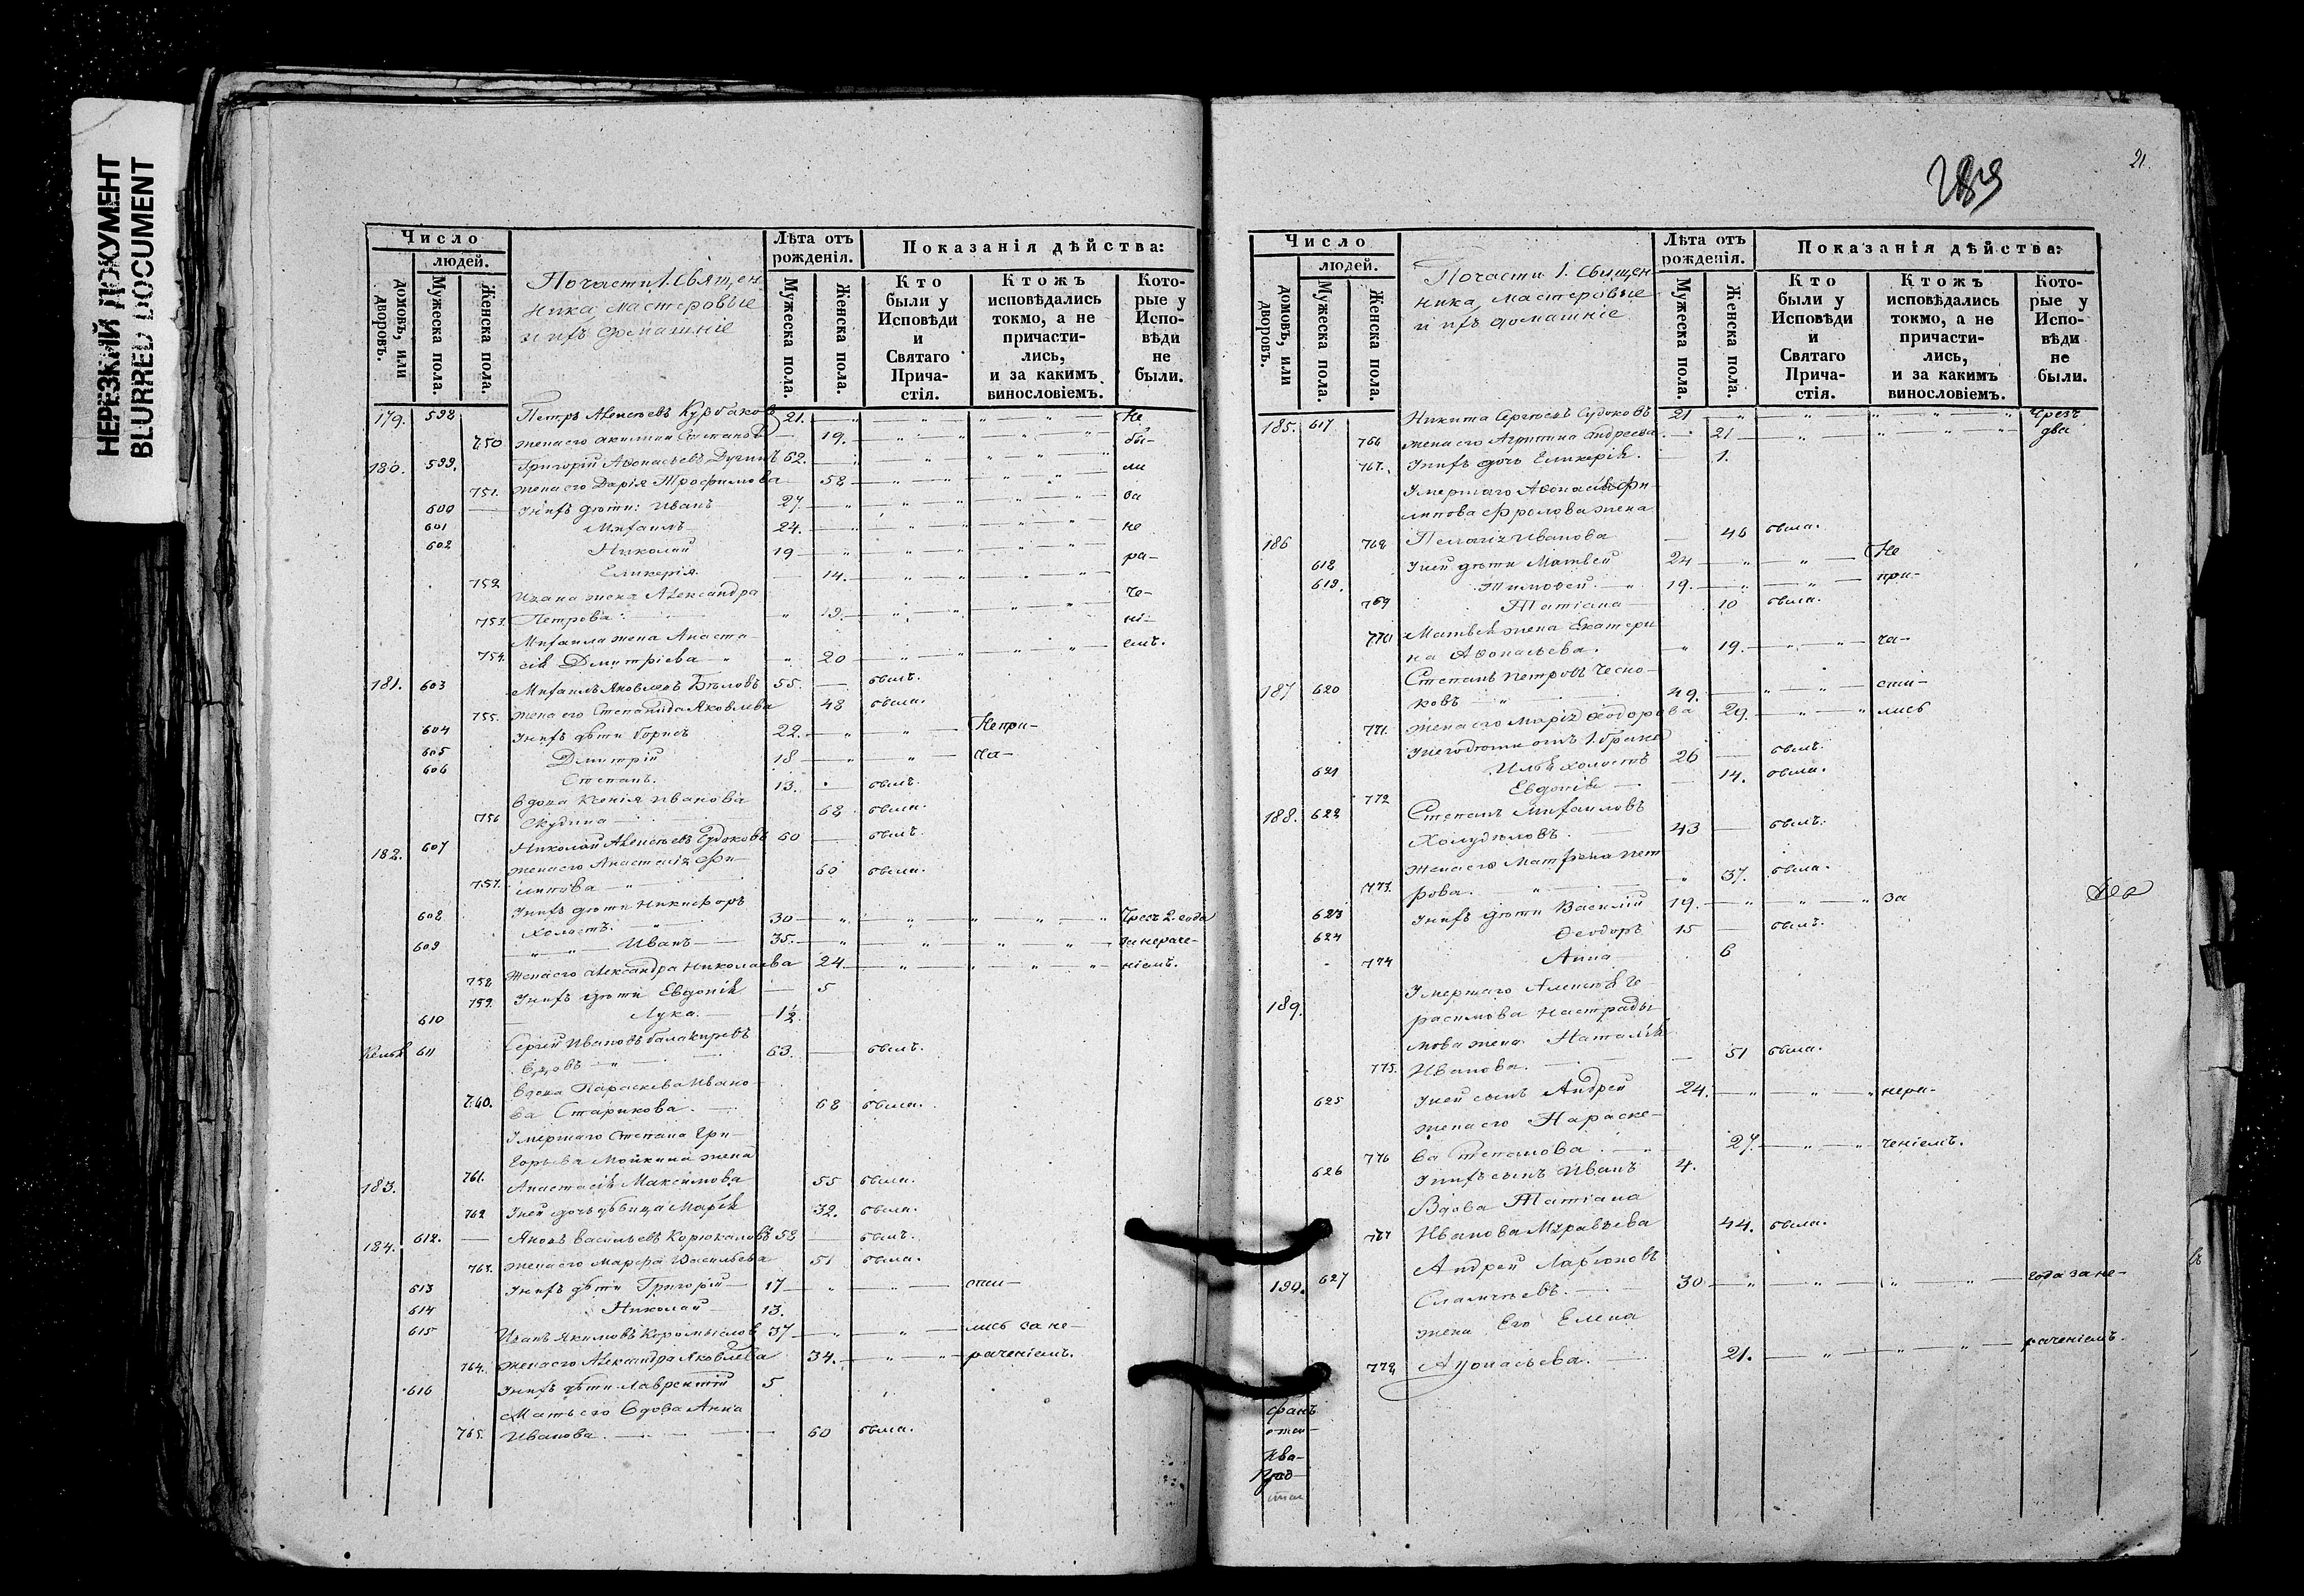 НЕРЕЗКИЙ ДОКУМЕНТ
BLURRED DOCUMENT
Число
людей.
домовъ, или дворовъ.
Мужеска пола.
Женска пола.
По части 1. Священ
ника мастеровые
и ихъ домашніе
Лѣта отъ рожденія.
Мужеска пола.
Женска пола.
Показанія дѣйства:
Кто были у Исповѣди и Святаго Прича-стія.
Ктожъ исповѣдались токмо, а не причасти-лись, и за какимъ винословіемъ.
Кото-рые у Испо-вѣди не были.
179. 598 Петръ Алексѣевъ Курбаковъ 21. Не
750 жена его Акилина Степанов 19. бы-
180. 599. Григорій Аѳонасьевъ 62. ли
751. жена его Дарія Трофимова 58 за
600 У нихъ дѣти: Иванъ 27. не
601 Михаилъ 24.
602 Николай 19 ра-
752 Гликерія 14.
Ивана жена Александра че-
753. Петрова 19. ні-
Михаила жена Анаста
754. сія Дмитріева 20 емъ.
181. 603 Михаилъ Яковлевъ Бѣловъ 55. былъ.
755. жена его Степанида Яковлева 48 была.
604 У нихъ дѣти Борисъ 22. Непри-
605 Дмитрій 18 ча-
606 Степанъ. 13. былъ
вдова Ксенія Иванова
756 Скудина 68 была.
182. 607 Николай Алексѣевъ Судоковъ 60 былъ
жена его Анастасія Фи-
757. липова 60 была.
608 У нихъ дѣти Никифоръ
холостъ. 30 Чрезъ 2 года
609 Иванъ 35. за нераче-
758 жена его Александра Николаева 24 ніемъ.
759. У нихъ дѣти Евдокія 5
610 Лука. 1½
Келья 611 Сергей Ивановъ Балакиревъ
вдовъ 63. былъ.
вдова Параскева Ивано-
760. ва Старикова. 68 была.
Умершаго Степана Гри-
горьева Мойкина жена
183. 761. Анастасія Максимова 55 была.
762 У ней дочь дѣвица Марія 32. была.
184. 612. Яковъ Васильевъ Корюкаловъ 58 былъ.
763. жена его Марфа Васильева 51 была.
613 У нихъ дѣти Григорій 17 сти-
614 Николай 13.
615 Иванъ Якимовъ Коромыслов 37 лись за не-
764. жена его Александра Яковлева 34. раченіемъ.
616 У нихъ дѣти Лаврентій 5
Мать его вдова Анна
765. Иванова. 60 была.
21.
Число
людей.
домовъ, или дворовъ.
Мужеска пола.
Женска пола.
По части 1. Священ
ника мастеровые
и ихъ домашніе
Лѣта отъ рожденія.
Мужеска пола.
Женска пола.
Показанія дѣйства:
Кто были у Исповѣди и Святаго Прича-стія.
Ктожъ исповѣдались токмо, а не причасти-лись, и за какимъ винословіемъ.
Кото-рые у Испо-вѣди не были.
185. 617 Никита Сергѣевъ Судоковъ 21 Чрезъ
766 жена его Агрипина Андреева 21 два
767. У нихъ дочь Гликерія. 1.
Умершаго Аѳонасія Фи-
липова Фролова жена
186 768 Пелагія Иванова 46 была.
618 У ней дѣти Матвей 24 Не
619. Тимоѳей 19. при-
769 Татіана 10 была.
770 Матвея жена Екатери
на Аѳонасьева. 19. ча-
Степанъ Петровъ Чесно-
187 620 ковъ 49. сти-
771. жена его Марія Ѳеодорова 29. лись
У него дѣти отъ 1. брака
621 Илья холостъ 26 былъ.
772 Евдокія 14. была.
188. 622 Степанъ Михаиловъ
Холудяловъ. 43 былъ.
жена его Матрона Пет
773. рова. 37. была.
623 У нихъ дѣти Василій 19. за
624 Ѳеодоръ 15 былъ.
774 Анна 6
Умершаго Алексѣя Ге
189. расимова
жена Наталія
775. Иванова. 51 была.
625 У ней сынъ Андрей 24. нера-
жена его Параске-
776 ва Степанова. 27. ченіемъ.
626 У нихъ сынъ Иванъ 4.
Вдова Татіана
777 Иванова Муравьева 44. была.
Андрей Ларіоновъ
190. 627 30 года за не-
жена Его Елена
778 Аѳонасьева. 21. раченіемъ.